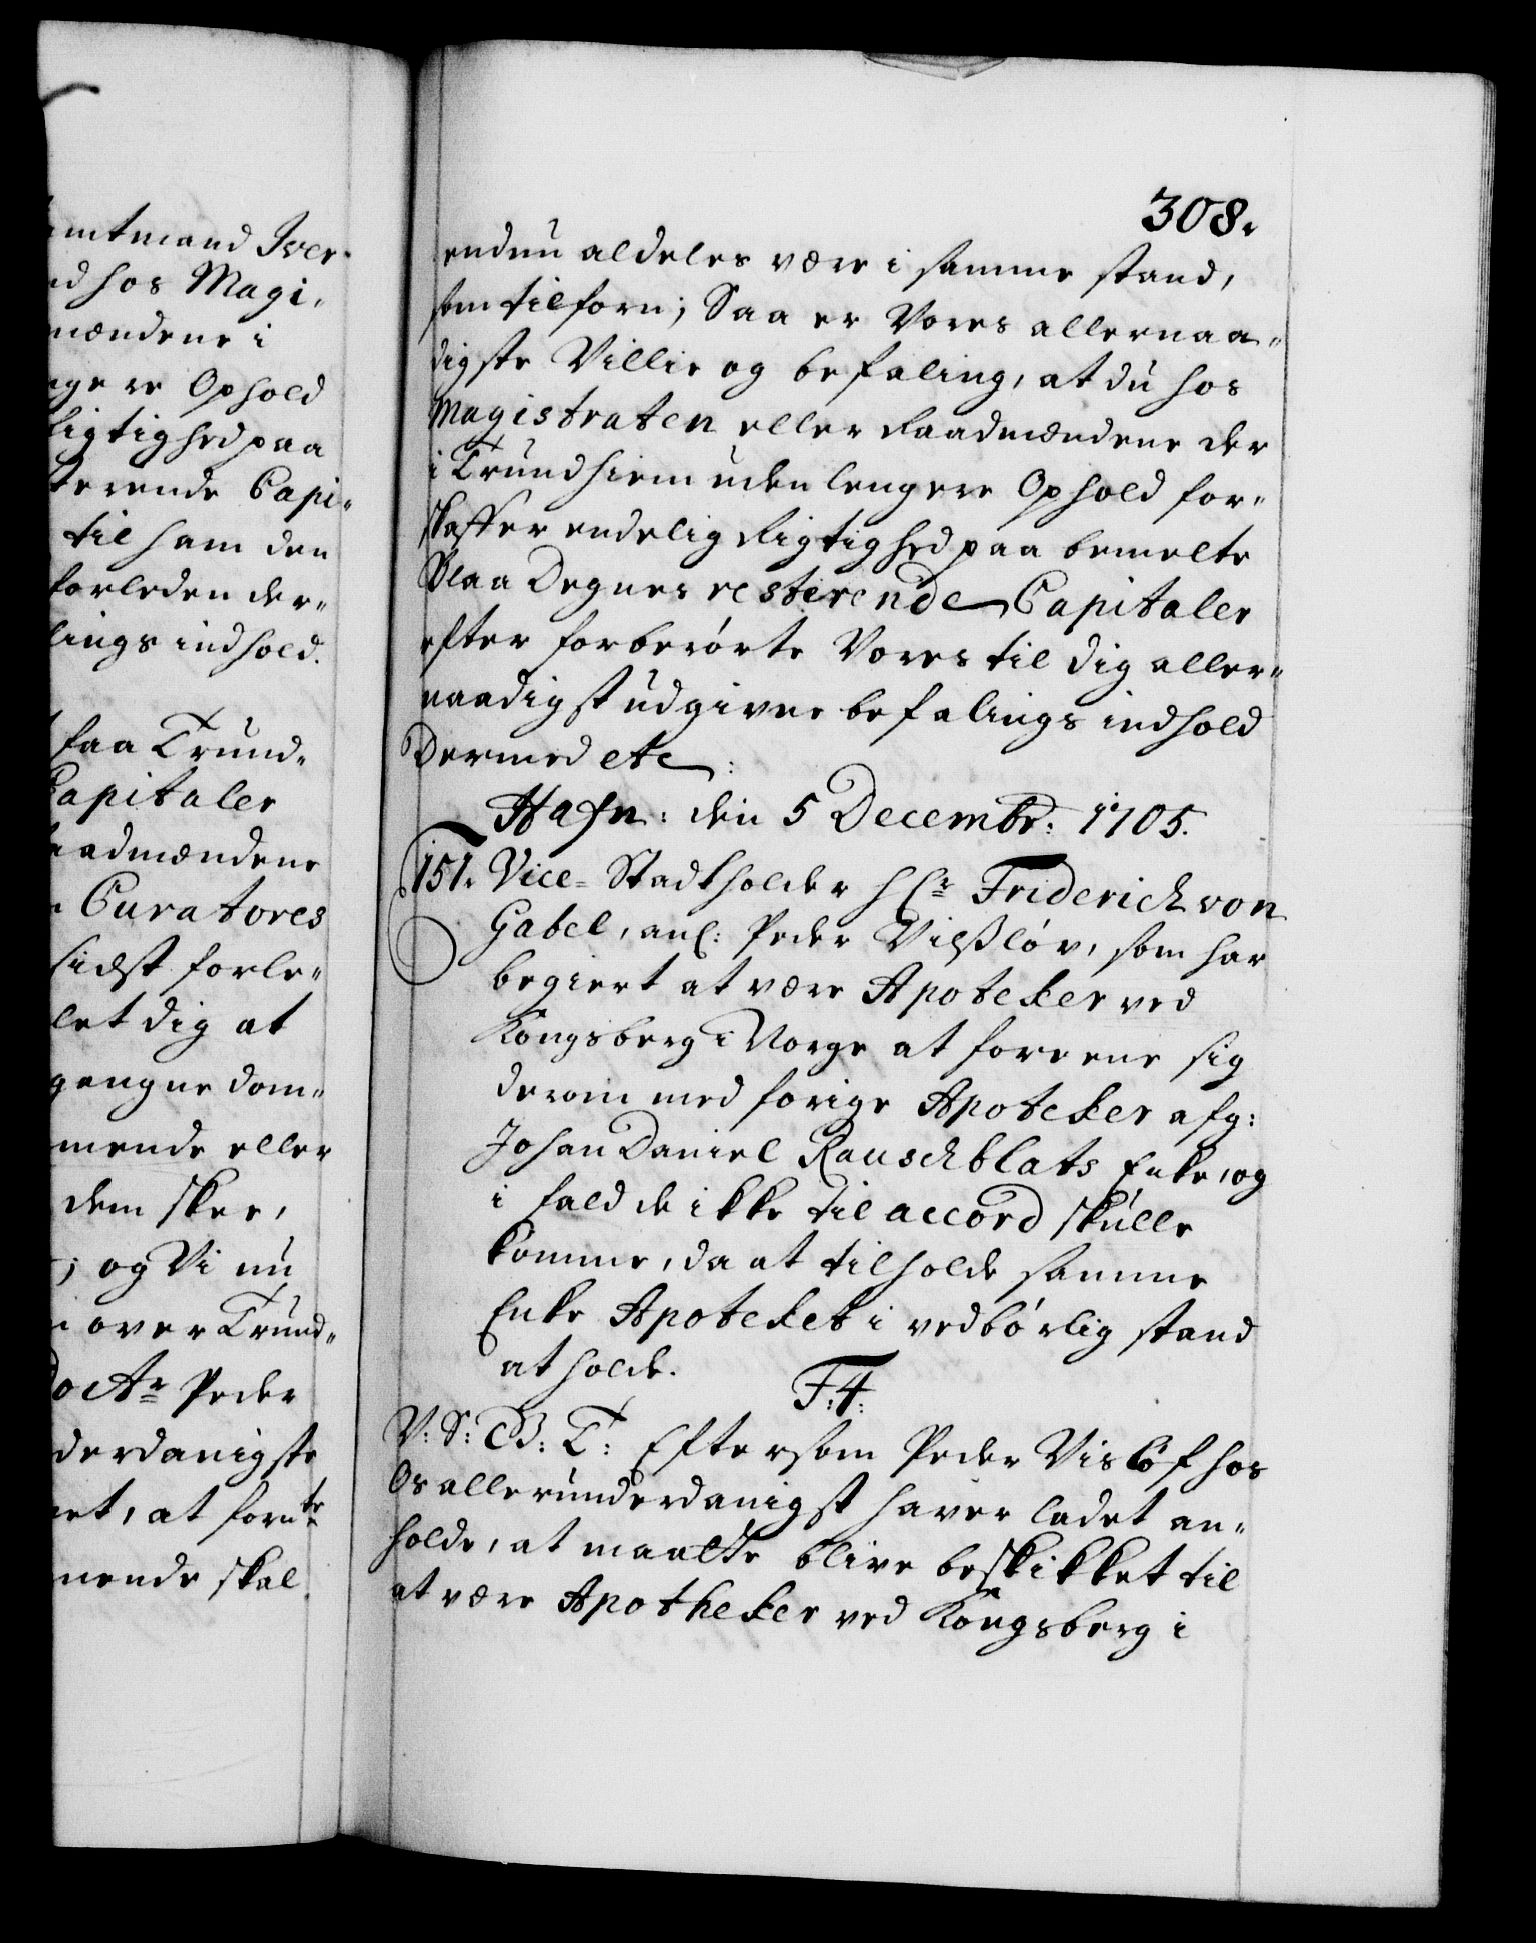 amtmand Iver
nd hos Magi,
mændene i
ngere Ophold
Rigtighed paa
sterende Capi-
til ham den
forleden der-
lings indhold.
faa Trund-
Capitaler
aadmændene
Curatores
sidst forle-
let dig at
gangne dom-
mende eller
dem skee,
; og Vi nu
i over Trund-
Doctr Peder
derdanigste
net, at fornte
mende skal
308.
endnu aldeles være i samme stand,
som tilforn; Saa er Vores allernaa-
digste Villie og befaling, at du hos
Magistraten eller Raadmændene der
i Trundhiem uden lengere Ophold for-
skaffer endelig Rigtighed paa bemelte
Blaa Degnes resterende Capitaler
efter forberørte Vores til dig aller-
naadigst udgivne befalings indhold
Dermed etc:
Hafn: den 5 Decembr: 1705.
151. Vice-Stadtholder Hr Friderich von
Gabel, anl: Peder Vilssløv, som har
begiert at være Apoteker ved
Kongsberg i Norge at foreene sig
derom med forige Apoteker afg:
Johan Daniel Rauschblats Enke, og
i fald de ikke til accord skulle
komme, da at tilholde samme
Enke Apoteket i vedbørlig stand
at holde.
F: 4:
V: S: G: T: Eftersom Peder Visløf hos
Os allerunderdanigst haver ladet an-
holde, at maatte blive beskikket til
at være Apotheker ved Kongsberg i